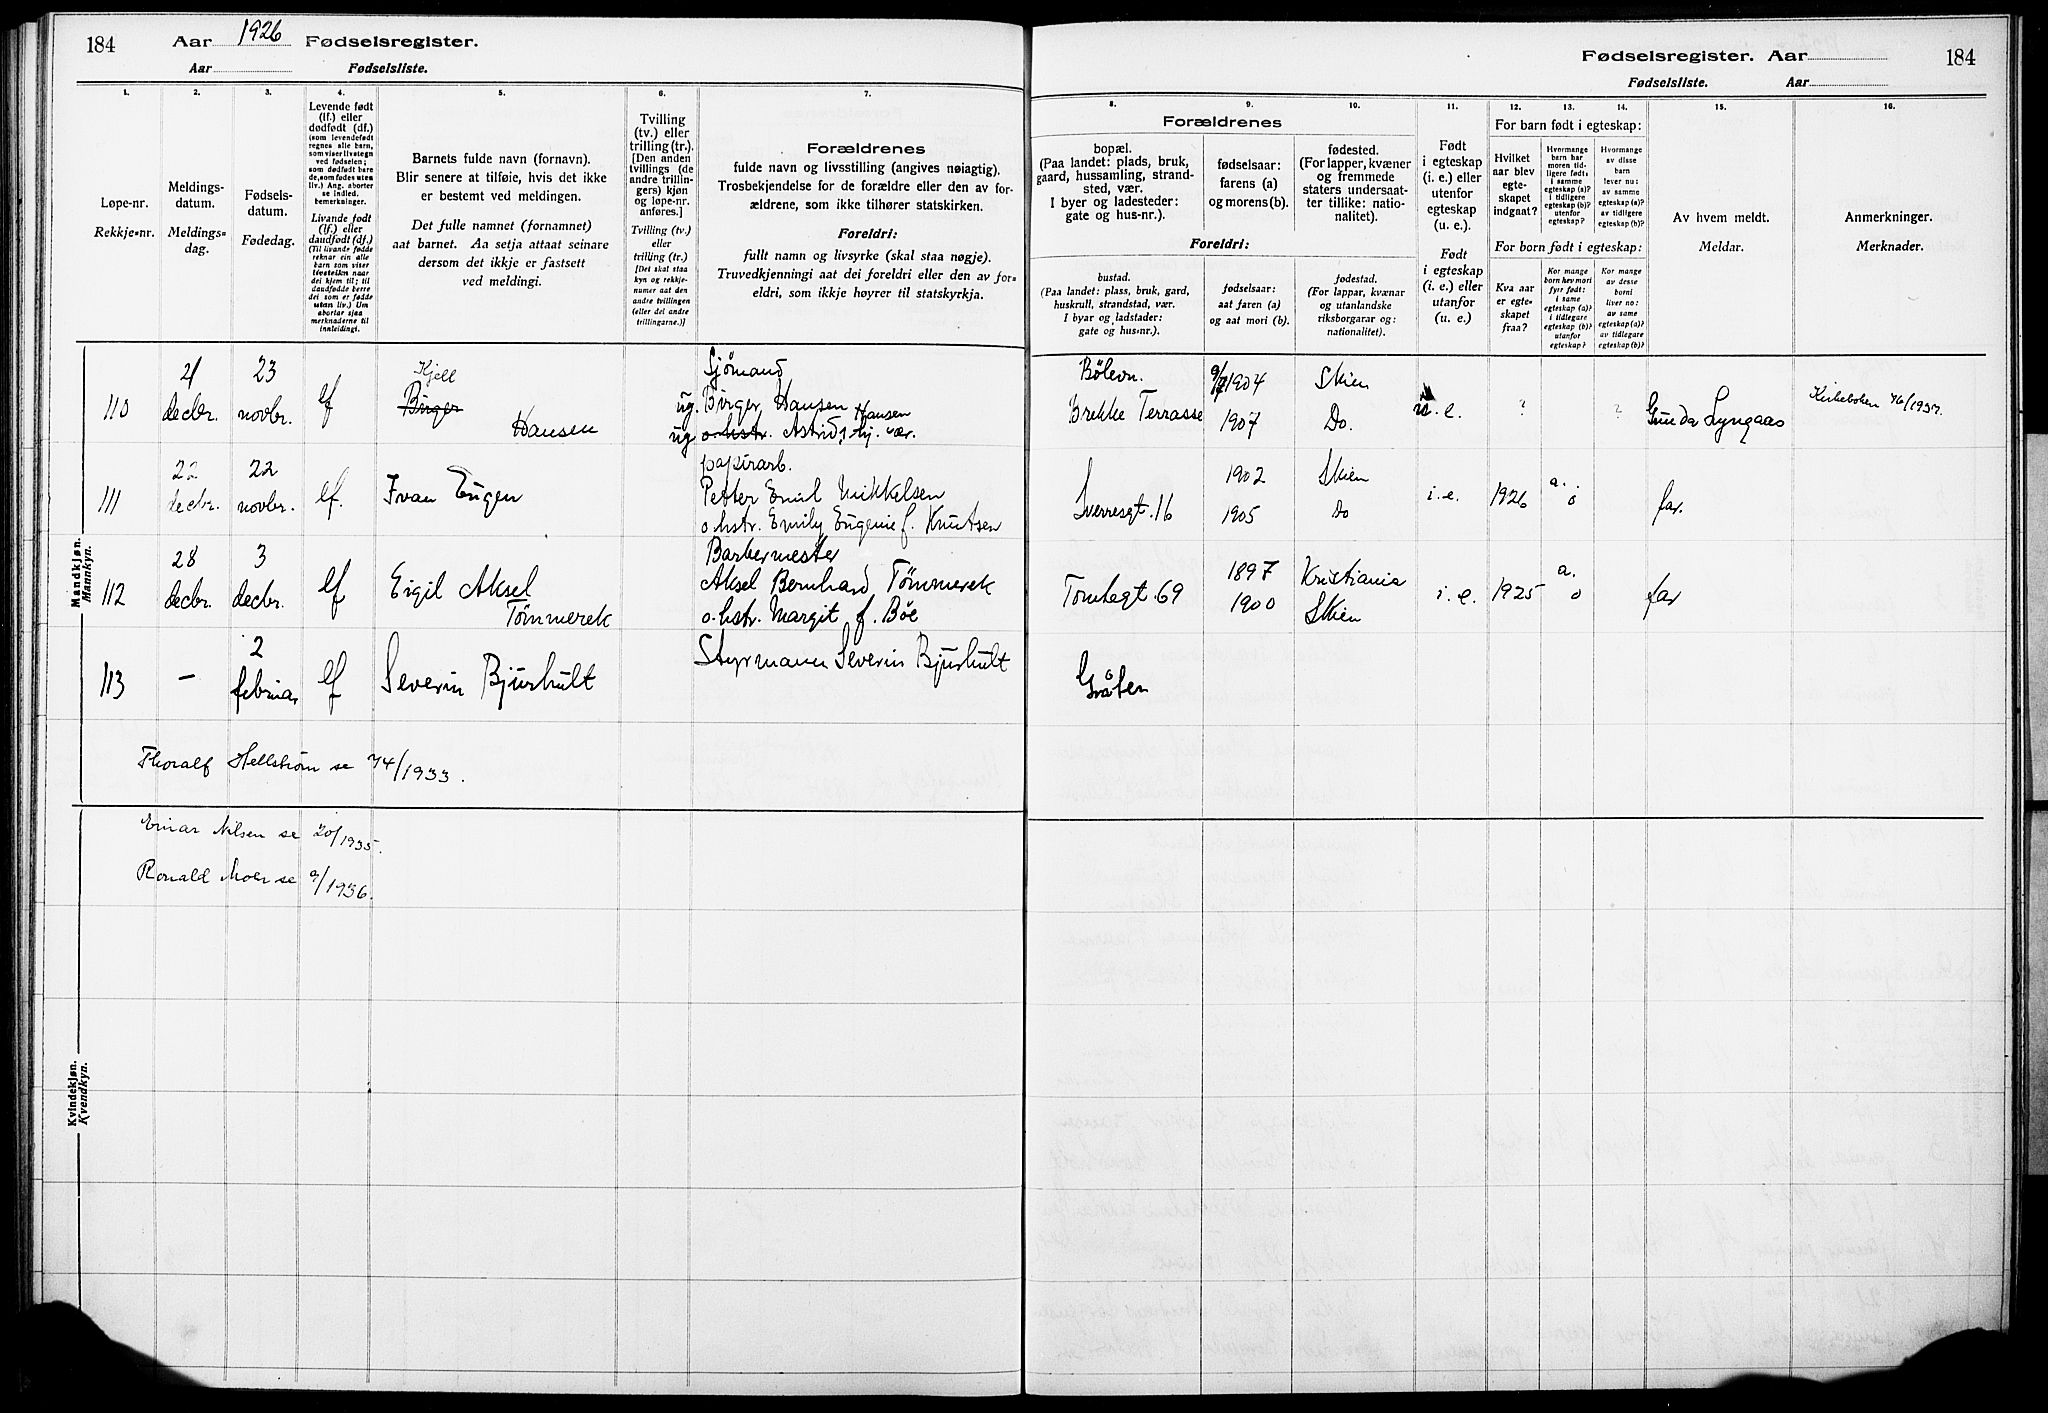 184 Aar 1926 Fødselsregister.
Aar Fødselsliste.
Fødselsregister. Aar 184
Fødselsliste. Aar
1. 2. 3. 4. 5. 6. 7. 8. 9. 10. 11. 12. 13. 14. 15. 16.
Løpe-nr.
Rekkje-nr.
Meldings-
datum.
Meldings-
dag.
Fødsels-
datum.
Fødedag.
Levende født
(lf.) eller
dødfødt (df.)
(som levendefødt
regnes alle barn,
som viser livstegn
ved fødselen;
som dødfødt bare
de, som fødes uten
liv.) Ang. aborter
se indled.
bemerkninger.
Livande født
(lf.) eller
daudfødt (df.)
(Til livande fødde
reknar ein alle
barn som viser
livsteikn naar
dei kjem til; til
daudfødde berre
dei som er fødde
utan liv.) Um
abortar sjaa
merknaderne til
innleidingi.
Barnets fulde navn (fornavn).
Blir senere at tilføie, hvis det ikke
er bestemt ved meldingen.
Det fulle namnet (fornamnet)
aat barnet. Aa setja attaat seinare
dersom det ikkje er fastsett
ved meldingi.
Tvilling
(tv.) eller
trilling (tr.).
[Den anden
tvillings (de
andre trillin-
gers) kjøn
og løpe-nr.
anføres.]
Tvilling (tv.)
eller
trilling (tr.)
[Det skal staa
kyn og rekkje-
numer aat den
andre tvillingen
(eller dei andre
trillingarne.)]
Forældrenes
fulde navn og livsstilling (angives nøiagtig).
Trosbekjendelse for de forældre eller den av for-
ældrene, som ikke tilhører statskirken.
Foreldri:
fullt namn og livsyrke (skal staa nøgje).
Truvedkjenningi aat dei foreldri eller den av for-
eldri, som ikkje høyrer til statskyrkja.
Forældrenes
bopæl.
(Paa landet: plads, bruk,
gaard, hussamling, strand-
sted, vær.
I byer og ladesteder:
gate og hus-nr.).
fødselsaar:
farens (a)
og morens (b).
fødested.
(For lapper, kvæner
og fremmede
staters undersaat-
ter tillike: natio-
nalitet).
Foreldri:
bustad.
(Paa landet: plass, bruk, gard,
huskrull, strandstad, vær.
I byar og ladstader:
gate og hus-nr.).
fødselsaar:
aat faren (a)
og aat mori (b).
fødestad.
(For lappar, kvænar
og utanlandske
riksborgarar og:
nationalitet).
Født
i egteskap
(i. e.) eller
utenfor
egteskap
(u. e.).
Født
i egteskap
(i. e.) eller
utanfor
(u. e.)
For barn født i egteskap:
Hvilket
aar blev
egte-
skapet
indgaat?
Hvormange
barn har
moren tid-
ligere født:
i samme
egteskap (a)?
i tidligere
egteskap (b)?
utenfor
egteskap?
Hvormange
av disse
barn
lever nu:
av samme
egteskap (a)?
av tidligere
egteskap (b)?
For born født i egteskap:
Kva aar
er egte-
skapet
fraa?
Kor mange
born hev mori
fyrr født:
i same
egteskap (a)?
i tidlegare
egteskap (b)?
utanfor
egteskap?
Kor mange
av desse
borni
liver no:
av same
egteskap (a)?
av tidlegare
egteskap (b)?
Av hvem meldt.
Meldar.
Anmerkninger.
Merknader.
Mandkjøn.
Mannkyn.
110 21 decbr. 23 novbr. lf Kjell
Birger
Hansen
Sjømand
ug. Birger Hansen
ug o. hstr. Astrid Hansen
Bølevn.
Brekke Terrasse
1904
1907
Skien
Do.
u. e. ? ? Gunda Lyngaas Kirkeboken 76/1937.
111 22 decbr. 22 novbr. lf. Ivan Eugen
papirarb.
Petter Emil Mikkelsen
o. hstr. Emily Eugenie f. Knutsen
Sverresgt. 16
1902
1905
Skien
Do
i. e. 1926 a. o far.
112 28 decbr. 3 decbr. lf Eigil Aksel
Tømmerek
Barbermester
Aksel Bernhard Tømmerek
o. hstr. Margit f. Bøe
Tomtegt. 69
1897
1900
Kristiania
Skien
i. e. 1925 a. o far
113 - 2 februar lf Severin Bjurhult
Styrmann Severin Bjurhult
Gråten
Thoralf Hellstrøm se 74/1933.
Einar Nilsen se 20/1935.
Ronald Moen se 9/1936.
Kvindekjøn.
Kvendkyn.